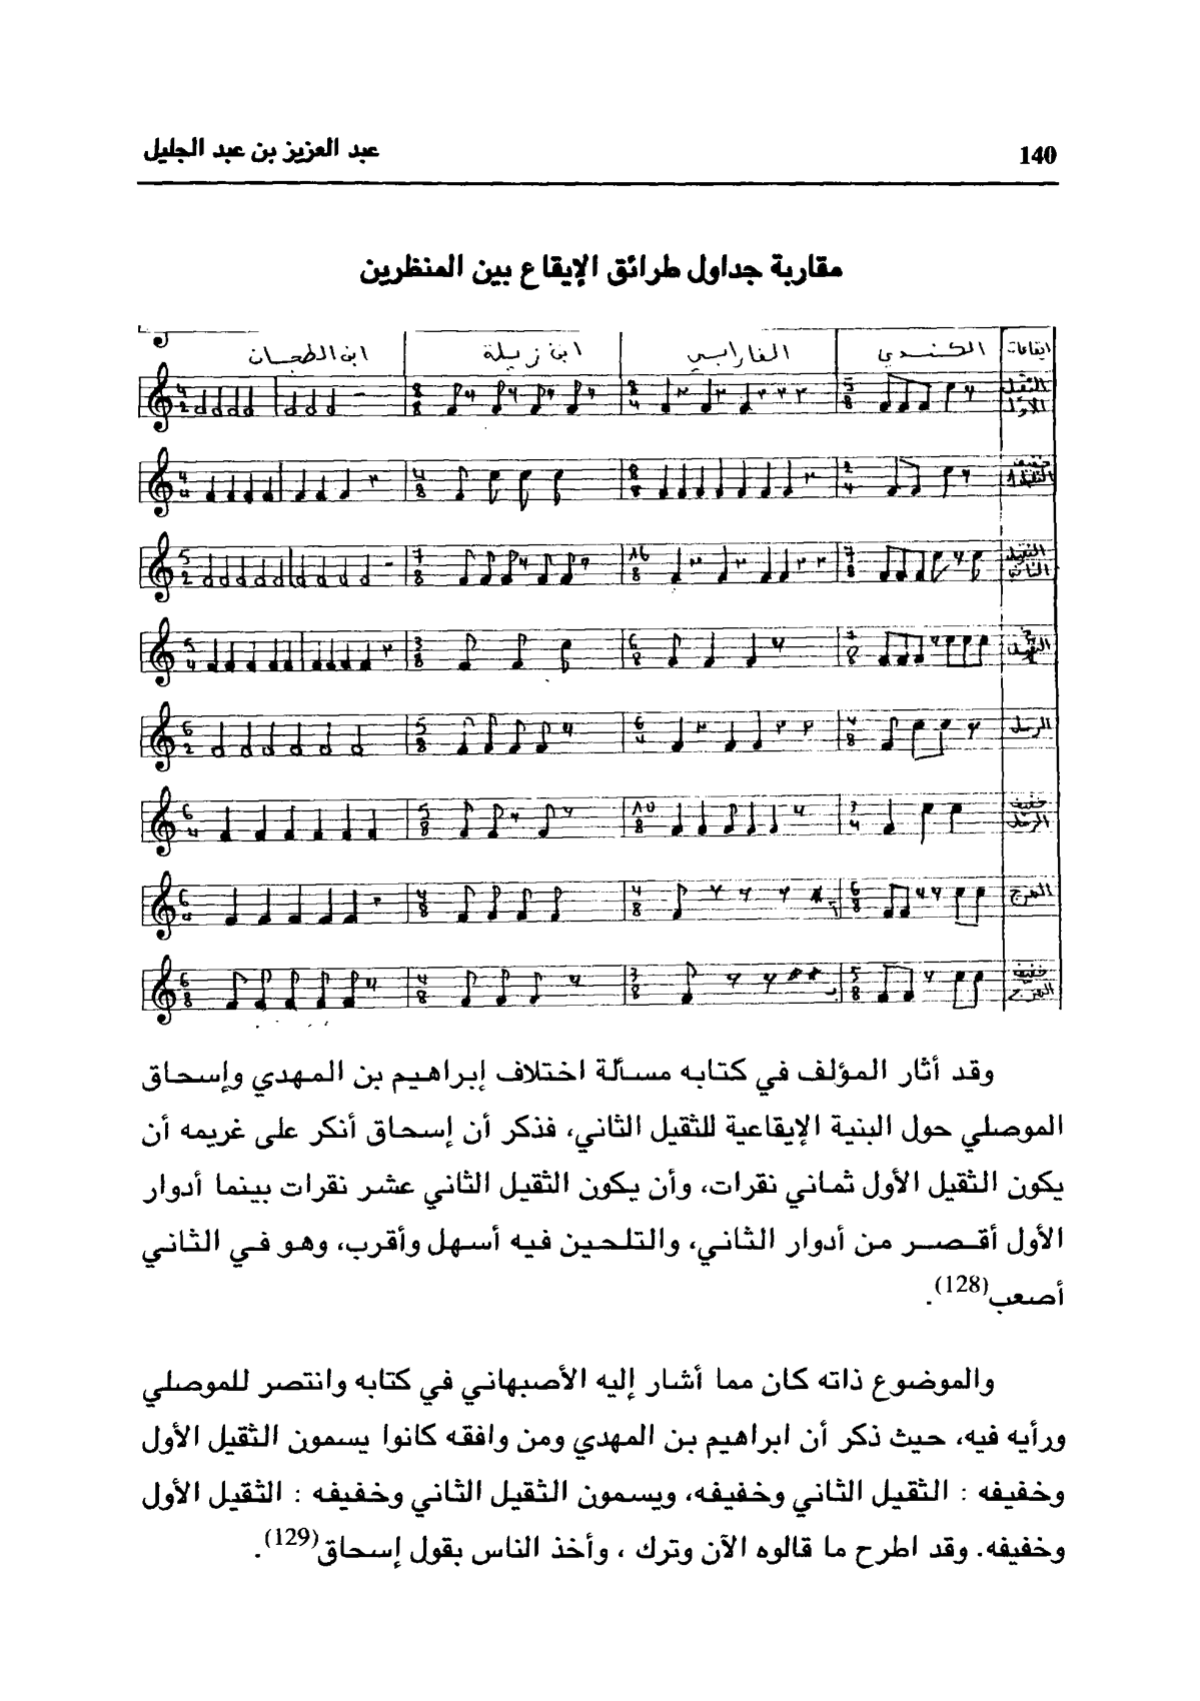 140
عبد العزيز بن عبد الجليل
مقاربة جداول طرائق الإيقاع بين المنظرين
ايقاعات
الكندي
الفارابي
ابن زيلة
ابن الطحان
الثقيل
الأول
5 8
8 4
8 8
4 2
خفيف
2 4
8 4
4 8
4 4
الثقيل
الثاني
7 8
16 8
7 8
5 2
7 8
6 8
3 8
5 4
الرمل
4 8
6 4
5 8
6 2
خفيف
الرمل
3 4
10 8
5 8
6 4
الهزج
6 8
4 8
4 8
6 4
خفيف
الهزج
5 8
3 8
4 8
6 8
وقد أثار المؤلف في كتابه مسألة اختلاف إبراهيم بن المهدي وإسحاق
الموصلي حول البنية الإيقاعية للثقيل الثاني، فذكر أن إسحاق أنكر على غريمه أن
يكون الثقيل الأول ثماني نقرات، وأن يكون الثقيل الثاني عشر نقرات بينما أدوار
الأول أقصر من أدوار الثاني، والتلحين فيه أسهل وأقرب، وهو في الثاني
أصعب(128).
والموضوع ذاته كان مما أشار إليه الأصبهاني في كتابه وانتصر للموصلي
ورأيه فيه، حيث ذكر أن ابراهيم بن المهدي ومن وافقه كانوا يسمون الثقيل الأول
وخفيفه : الثقيل الثاني وخفيفه، ويسمون الثقيل الثاني وخفيفه : الثقيل الأول
وخفيفه. وقد اطرح ما قالوه الآن وترك ، وأخذ الناس بقول إسحاق(129).